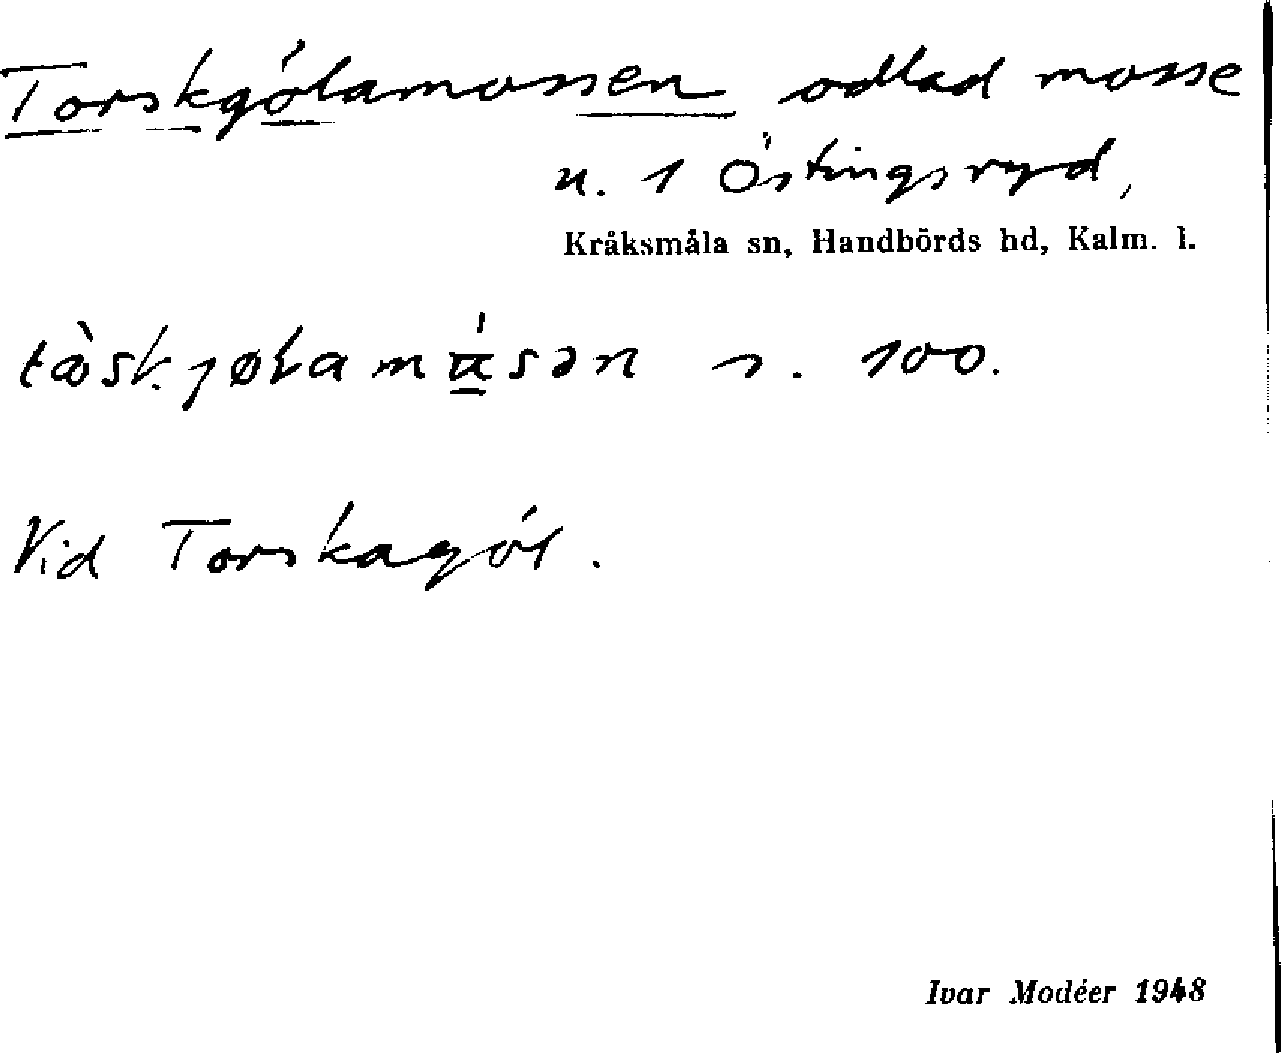 Torskgölamossen odlad mosse
n. 1 Östingsryd,
Kråksmåla sn, Handbörds hd, Kalm. l.
s. 100.
Vid Torskagöl.
Ivar Modéer 1948